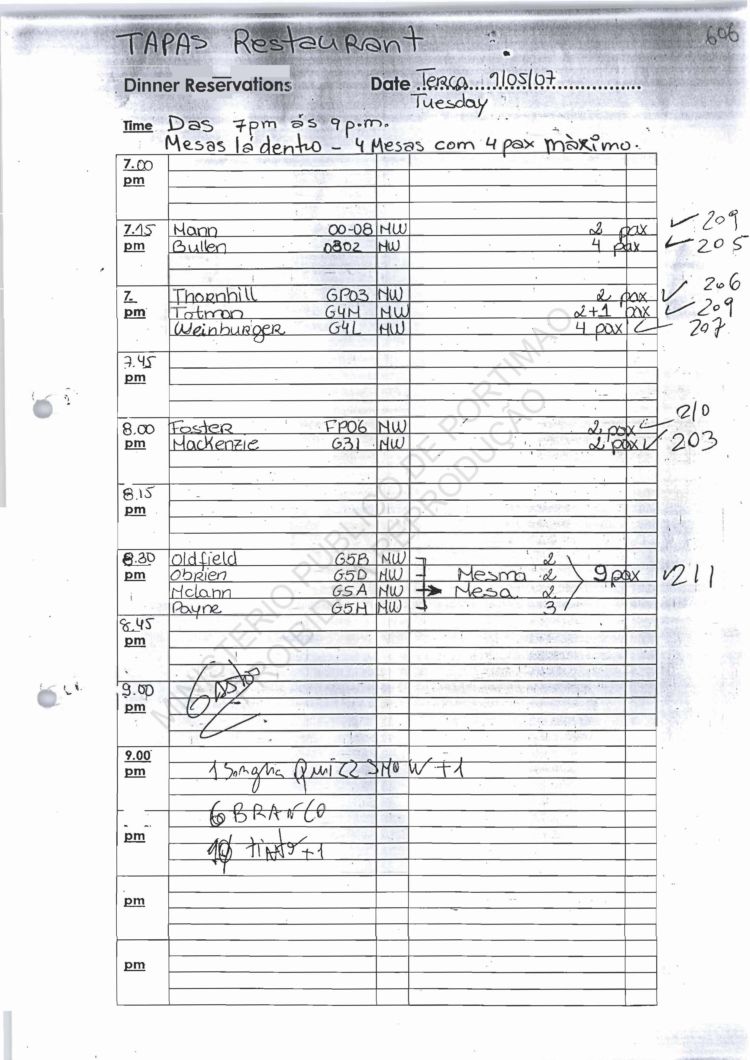 606
TAPAS Restaurant
Dinner Reservations Date Terça 1/05/07
Tuesday
Time Das 7pm às 9p.m.
Mesas lá dentro - 4 Mesas com 4 pax màximo.
7.00
pm
7.15 Mann 00-08 NW 2 pax ✓ 209
pm Bullen 0302 NW 4 pax ✓ 205
7. Thornhill GP03 NW 2 pax ✓ 206
pm Totman G4M NW 2+1 pax ✓ 209
Weinburger G4L NW 4 pax ✓ 207
7.45
pm
8.00 Foster FP06 NW 2 pax ✓ 210
pm Mackenzie G3I NW 2 pax ✓ 203
8.15
pm
8.30 Oldfield G5B NW 2
pm Obrien G5D NW Mesma 2 9 pax ✓ 211
Mclann G5A NW → Mesa. 2
Payne G5H NW 3
8.45
pm
9.00
pm
9.00
pm
1 Sangria Quizz SHOW +1
6 BRANCO
pm
tinto +1
pm
pm
MINISTERIO PUBLICO DE PORTIMAO
PROIBIDA A REPRODUÇÃO